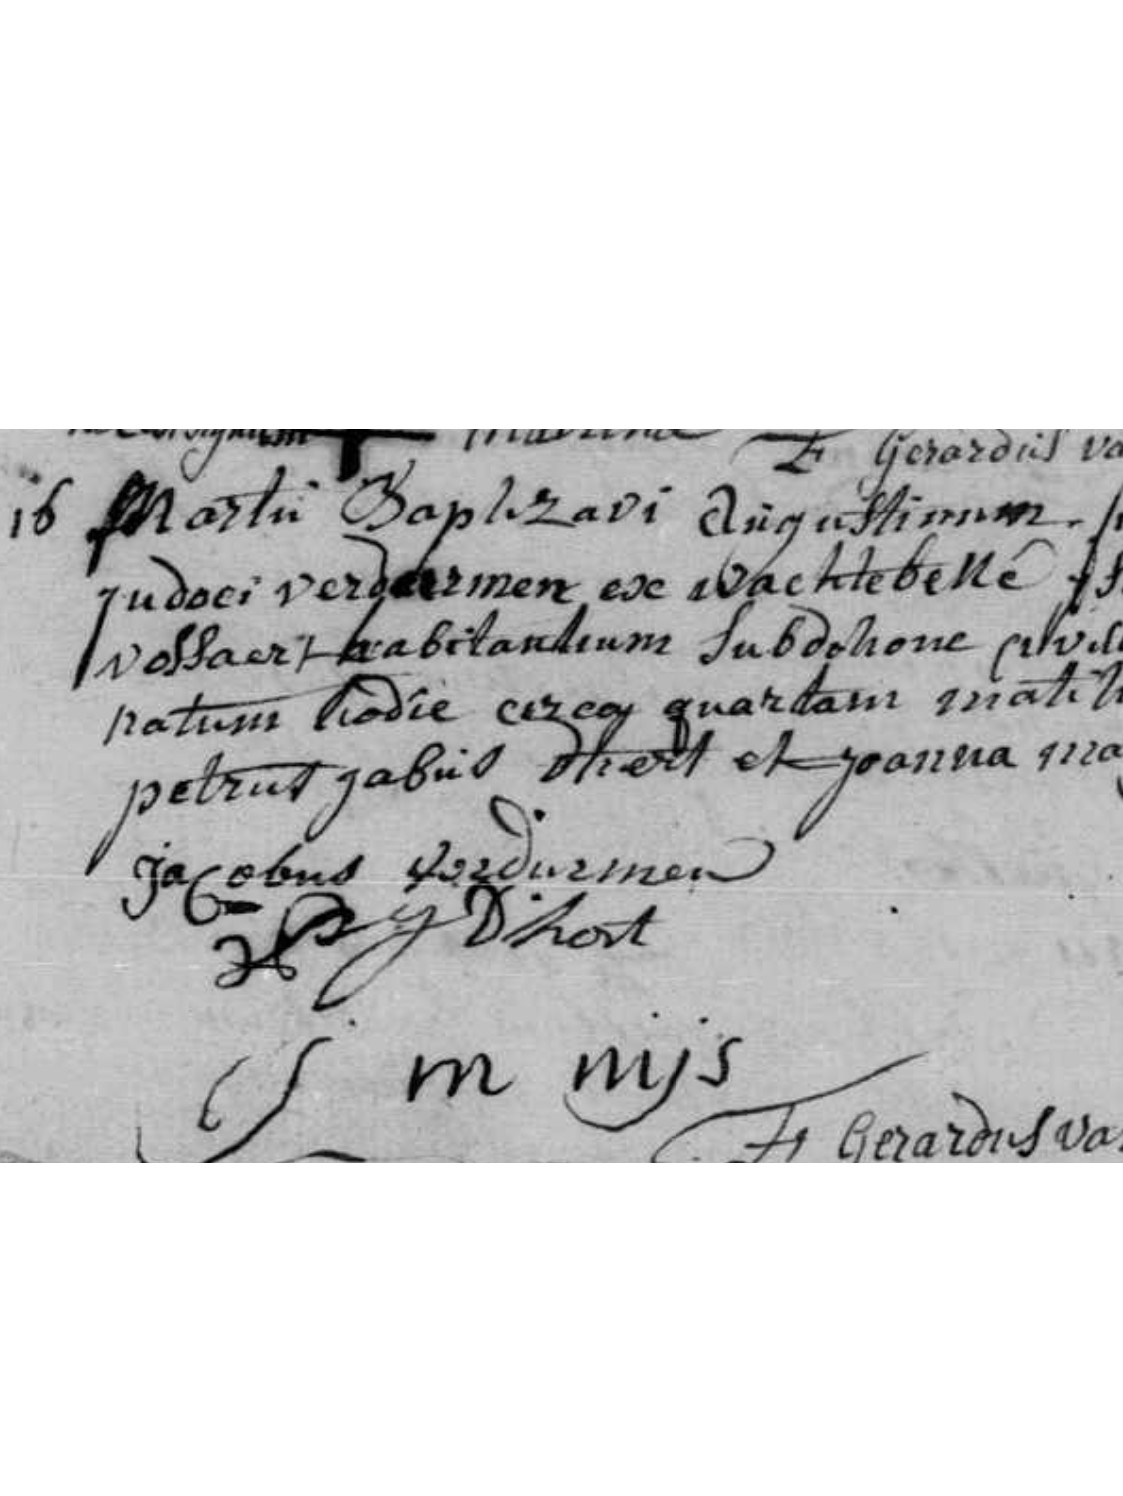 Gerardus va
16 Martii Baptizavi Augustinum
judoci verdurmen ex wachtebeke
vossaert habitantium sub
natum hodie circa quartam
petrus jabus dhert et joanna ma
jacobus verdurmen
Dhort
j m nijs
Gerardus va